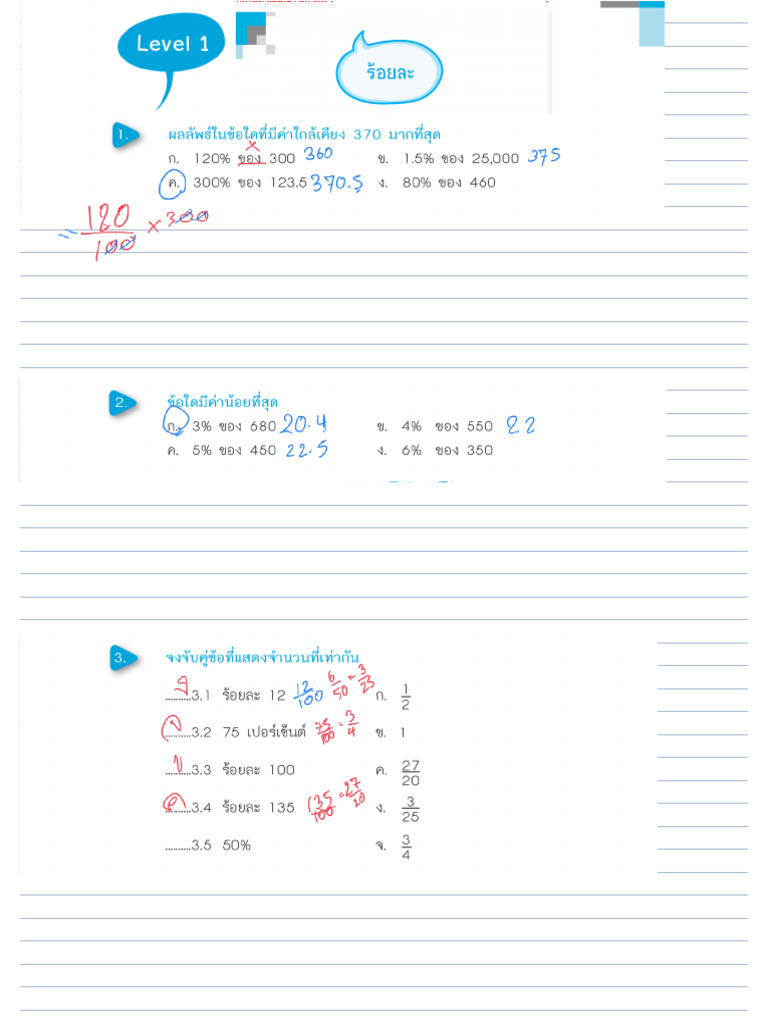 Level 1
ร้อยละ
1. ผลลัพธ์ในข้อใดที่มีค่าใกล้เคียง 370 มากที่สุด
×
ก. 120% ของ 300 360 ข. 1.5% ของ 25,000 375
ค. 300% ของ 123.5 370.5 ง. 80% ของ 460
= 120/100 × 300
2. ข้อใดมีค่าน้อยที่สุด
ก. 3% ของ 680 20.4 ข. 4% ของ 550 22
ค. 5% ของ 450 22.5 ง. 6% ของ 350
3. จงจับคู่ข้อที่แสดงจำนวนที่เท่ากัน
..........3.1 ร้อยละ 12 12/100 6/50 = 3/25 ก. 1/2
จ ..........3.2 75 เปอร์เซ็นต์ 75/100 = 3/4 ข. 1
ข ..........3.3 ร้อยละ 100 ค. 27/20
ค ..........3.4 ร้อยละ 135 135/100 = 27/20 ง. 3/25
..........3.5 50% จ. 3/4